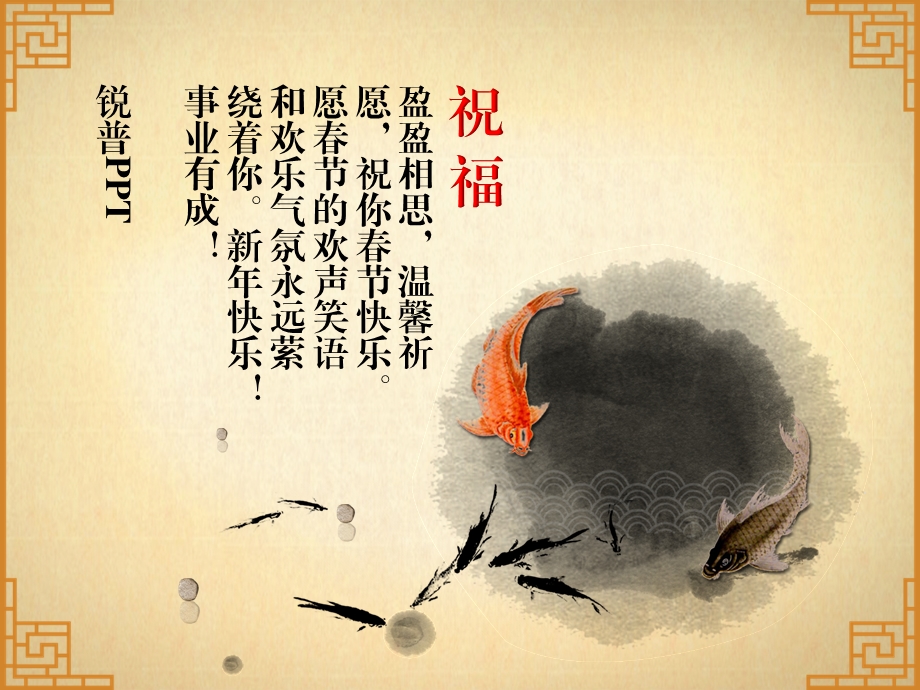 祝福
盈盈相思，温馨祈
愿，祝你春节快乐。
愿春节的欢声笑语
和欢乐气氛永远萦
绕着你。新年快乐！
事业有成！
锐普PPT